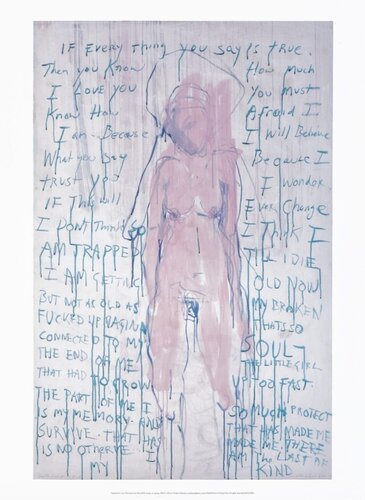 IF EVERY THING YOU SAY IS TRUE.
Then you Know How much
I LOVE YOU YOU MUST
KNOW HOW AFRAID I
I am. Because I WILL BELIEVE
WHAT YOU SAY BECAUSE I
TRUST YOU I WONDER
IF THIS WILL EVER CHANGE
I DONT THINK SO I THINK I
AM TRAPPED TILL I DIE
I AM GETTING OLD NOW
BUT NOT AS OLD AS MY BROKEN
FUCKED UP VAGINA THATS SO
CONNECTED TO MY SOUL
THE END OF ME THE LITTLE GIRL
THAT HAD TO GROW UP TOO FAST.
THE PART OF ME I SO MUCH PROTECT
IS MY MEMORY. AND THAT HAS MADE ME
SURVIVE. THAT HAS MADE ME. THERE
IS NO OTHER. I AM THE LAST OF
MY KIND